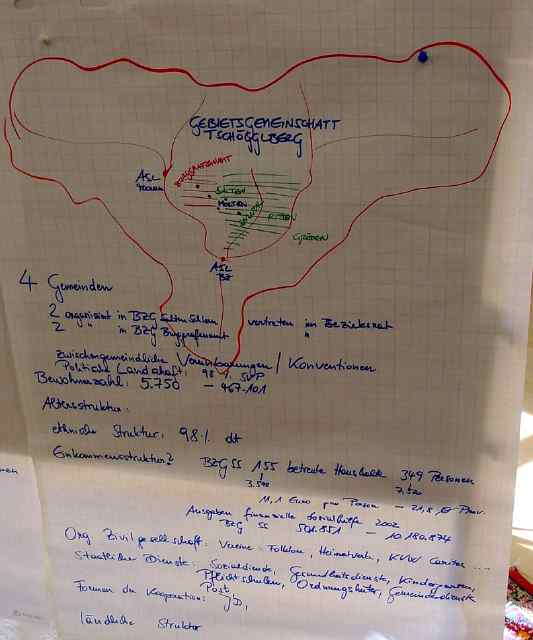 GEBIETSGEMEINSCHAFT
TSCHÖGGLBERG
ASL
BURGGRAFSCHAFT
SALTEN
MÖLTEN
RITTEN
GRÖDEN
ASL
BZ
4 Gemeinden
2 organisiert in BZG Salten Schlern vertreten im Bezirksrat
2 " in BZG Burggrafenamt "
Zwischengemeindliche Vereinbarungen / Konventionen
Politische Landschaft: 98 % SVP
Bewohnerzahl: 5.750 — 467.101
Altersstruktur:
ethnische Struktur: 98 % dt
Einkommensstruktur?
BZG SS 155 betreute Haushalte 349 Personen
11,1 Euro pro Person — 21,8
Ausgaben finanzielle Sozialhilfe 2002
BZG SS 501.851 — 10.180.874
Org. Zivilgesellschaft: Vereine: Folklore, Heimatverb., KVW Caritas ...
Staatliche Dienste: Sozialdienste, Gesundheitsdienste, Kindergarten,
Pflichtschulen, Ordnungshüter, Gemeindedienste
Post
Formen der Kooperation: JD,
ländliche Struktur